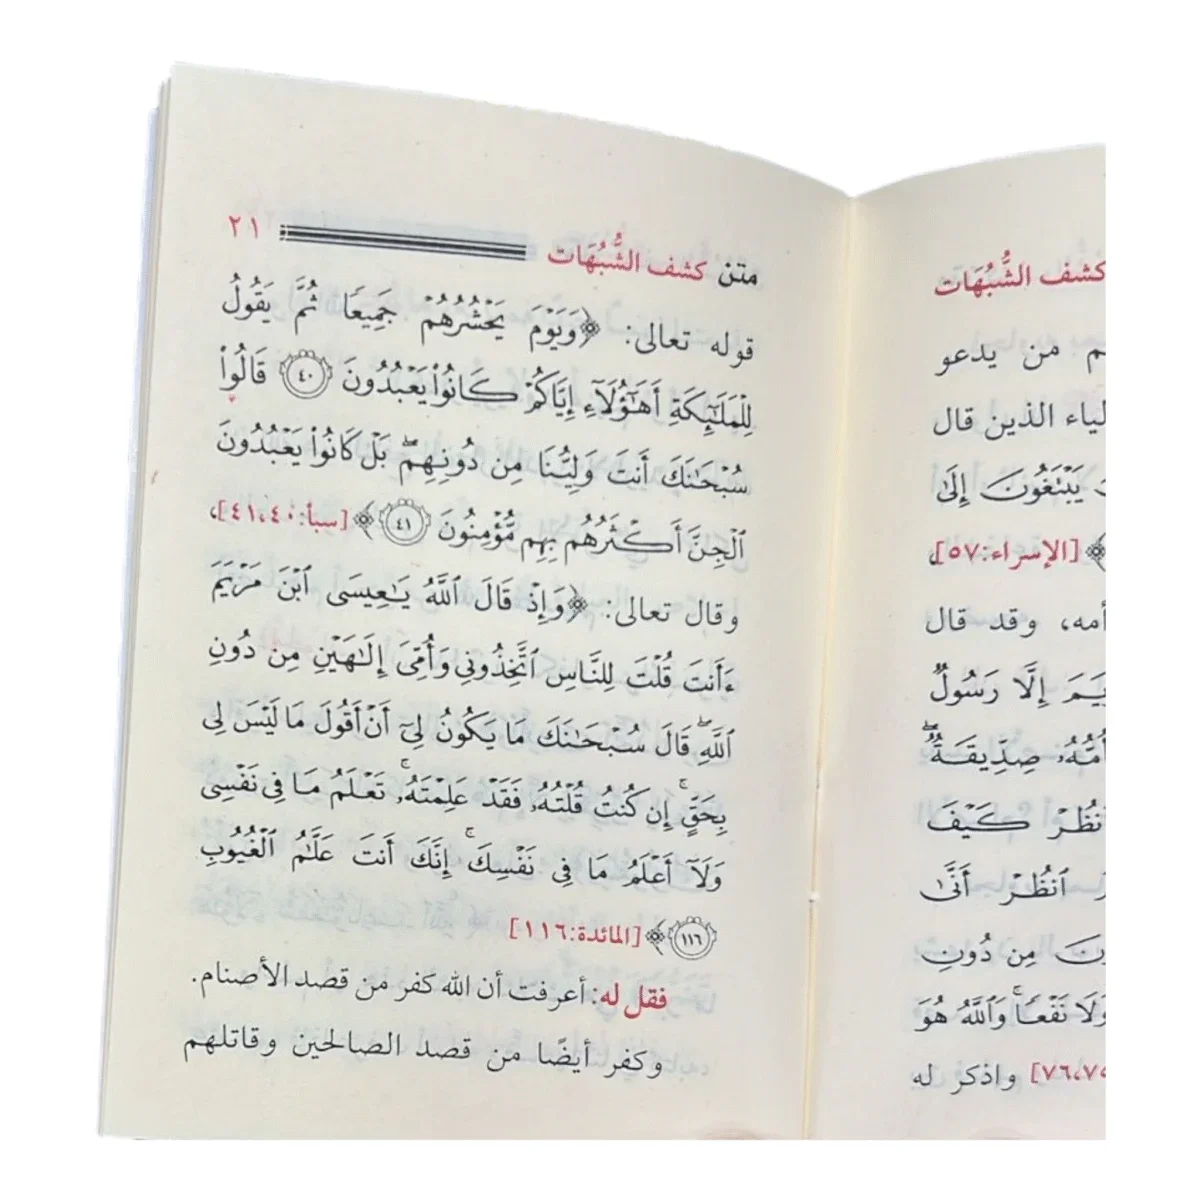 كشف الشُّبُهَات
من يدعو
الذين قال
يَبْتَغُونَ إِلَىٰ
﴾ [الإسراء:٥٧]،
أمه، وقد قال
إِلَّا رَسُولٌ
أُمُّهُۥ صِدِّيقَةٌۖ
كَيْفَ
ٱنظُرْ أَنَّىٰ
مِن دُونِ
وَلَا نَفْعًاۚ وَٱللَّهُ هُوَ
٧٦،٧٥] واذكر له
متن كشف الشُّبُهَات ٢١
قوله تعالى: ﴿وَيَوْمَ يَحْشُرُهُمْ جَمِيعًا ثُمَّ يَقُولُ
لِلْمَلَـٰٓئِكَةِ أَهَـٰٓؤُلَآءِ إِيَّاكُمْ كَانُوا۟ يَعْبُدُونَ ٤٠ قَالُوا۟
سُبْحَـٰنَكَ أَنتَ وَلِيُّنَا مِن دُونِهِمۖ بَلْ كَانُوا۟ يَعْبُدُونَ
ٱلْجِنَّ أَكْثَرُهُم بِهِم مُّؤْمِنُونَ ٤١﴾ [سبأ:٤١،٤٠]،
وقال تعالى: ﴿وَإِذْ قَالَ ٱللَّهُ يَـٰعِيسَى ٱبْنَ مَرْيَمَ
ءَأَنتَ قُلْتَ لِلنَّاسِ ٱتَّخِذُونِى وَأُمِّىَ إِلَـٰهَيْنِ مِن دُونِ
ٱللَّهِۖ قَالَ سُبْحَـٰنَكَ مَا يَكُونُ لِىٓ أَنْ أَقُولَ مَا لَيْسَ لِى
بِحَقٍّۚ إِن كُنتُ قُلْتُهُۥ فَقَدْ عَلِمْتَهُۥۚ تَعْلَمُ مَا فِى نَفْسِى
وَلَآ أَعْلَمُ مَا فِى نَفْسِكَۚ إِنَّكَ أَنتَ عَلَّـٰمُ ٱلْغُيُوبِ
١١٦﴾ [المائدة:١١٦]
فقل له: أعرفت أن الله كفر من قصد الأصنام.
وكفر أيضًا من قصد الصالحين وقاتلهم